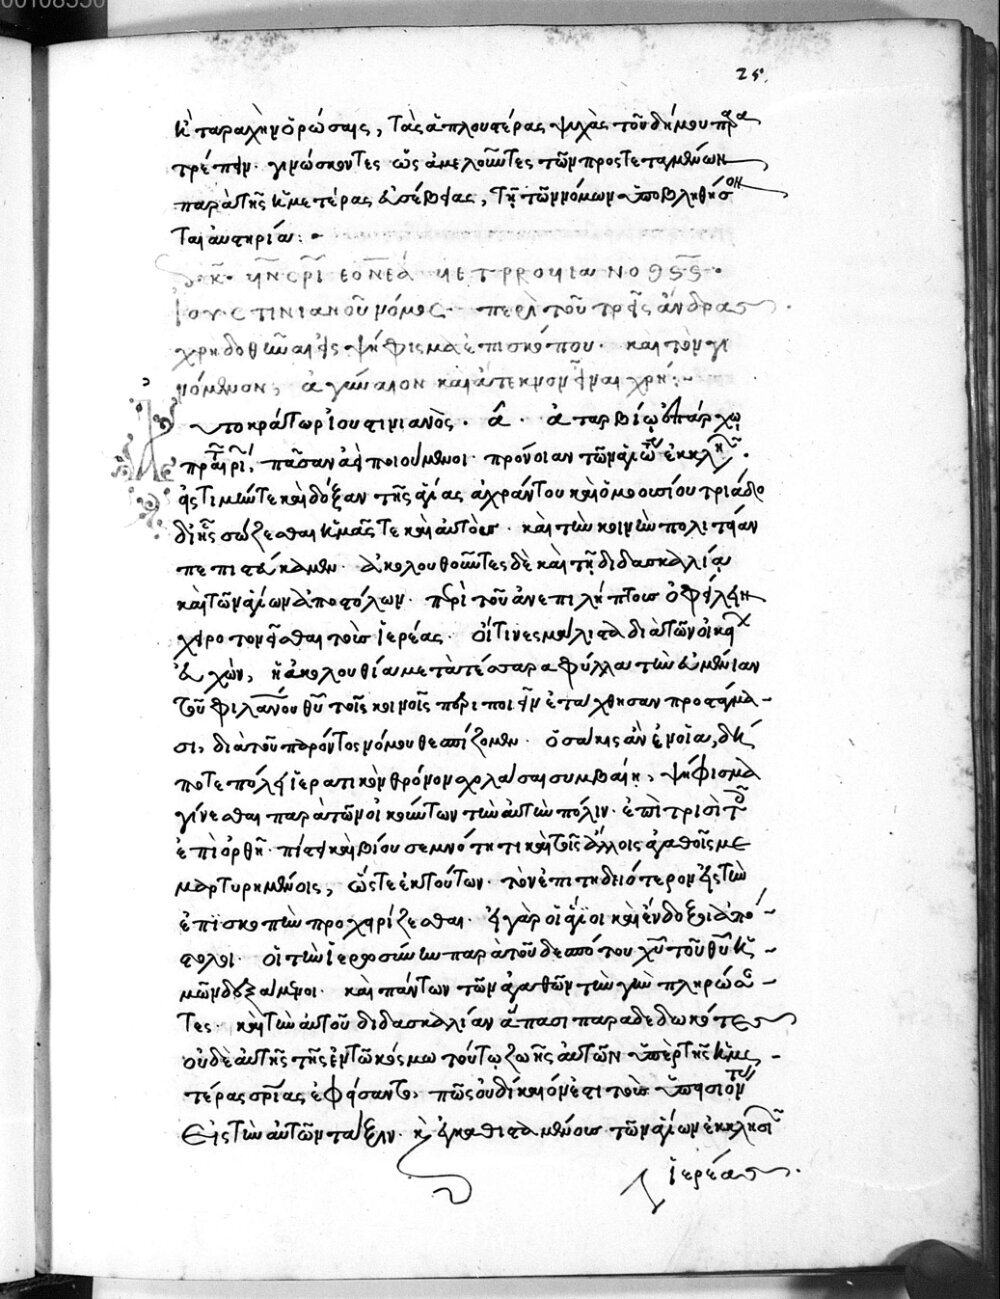 00108550
25
κ ταραχὴν ὁρώσαις, τὰς ἁπλουστέρας ψυχὰς τοῦ δήμου παρα
τρέπειν. γινώσκοντες ὡς ἀμελοῦντες τῶν προστεταγμένων
παρὰ τῆς ἡμετέρας εὐσεβείας, τῇ τῶν νόμων ὑποβληθήσον
ται αὐστηρία:
Ἰουστινιανοῦ νόμος περὶ τοῦ τρεῖς ἄνδρας
χρὴ δοθῆναι εἰς ψήφισμα ἐπισκόπου. καὶ τὸν γι
νόμενον, ἀγύναιον καὶ ἄτεκνον εἶναι χρή:
Αὐτοκράτωρ Ἰουστινιανὸς. ἀταρβίῳ ἐπάρχῳ
πραιτωρί, πᾶσαν ἀεὶ ποιούμενοι πρόνοιαν τῶν ἁγιω ἐκκλη
εἰς τιμήν τε καὶ δόξαν τῆς ἁγίας ἀχράντου καὶ ὁμοουσίου τριάδο
δι' ἧς σώζεσθαι ἡμᾶς τε καὶ αὐτοὺς. καὶ τὴν κοινὴν πολιτείαν
πεπιστεύκαμεν. ἀκολουθοῦντες δὲ καὶ τῇ διδασκαλίᾳ
καὶ τῶν ἁγίων ἀποστόλων. περὶ τοῦ ἀνεπιλήπτους ὀφείλειν
χειροτονεῖσθαι τοὺς ἱερέας. οἵτινες μάλιστα διὰ τῶν οἰκει
εὐχῶν, ἡ ἀκολουθία μετὰ τέσσαρα φύλλα τὴν εὐμένειαν
τοῦ φιλανου θυ τοῖς κοινοῖς περιποιεῖν ἐτάχθησαν προστάγμα-
σι, διὰ τοῦ παρόντος νόμου θεσπίζομεν. ὁσάκις ἂν ἐν οἵα δή
ποτε πόλει ἱερατικὸν θρόνον σχολάσαι συμβαίη, ψήφισμα
γίνεσθαι παρὰ τῶν οἰκούντων τὴν αὐτὴν πόλιν. ἐπὶ τρισὶ το
ἐπὶ ὀρθῇ πίστει καὶ βίου σεμνότητι καὶ τοῖς ἄλλοις ἀγαθοῖς με
μαρτυρημένοις, ὥστε ἐκ τούτων τὸν ἐπιτηδειότερον εἰς τὴν
ἐπισκοπὴν προχειρίζεσθαι. εἰ γὰρ οἱ ἅγιοι καὶ ἔνδοξοι ἀπό-
στολοι. οἱ τὴν ἱερωσύνην παρὰ τοῦ δεσπότου χυ τοῦ θυ ἡ-
μῶν δεξάμενοι. καὶ πάντων τῶν ἀγαθῶν τὴν γῆν πληρώσαν-
τες. καὶ τὴν αὐτοῦ διδασκαλίαν ἅπασι παραδεδωκότες
οὐδὲ αὐτῆς τῆς ἐν τῷ κόσμω τούτῳ ζωῆς αὐτῶν ὑπὲρ τῆς ἡμε-
τέρας σρίας ἐφείσαντο, πῶς οὐ δίκαιόν ἐστι τοὺς ὑπεισιόντ
εἰς τὴν αὐτῶν τάξιν. κ ἐγκαθισταμένους τῶν ἁγίων ἐκκλησι
ἱερέας.